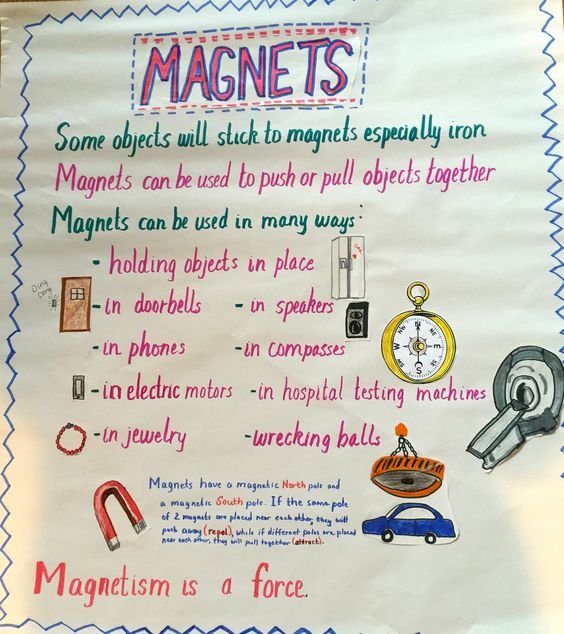 MAGNETS
Some objects will stick to magnets especially iron
Magnets can be used to push or pull objects together
Magnets can be used in many ways:
- holding objects in place
Ding
Dong
- in doorbells - in speakers
- in phones - in compasses
- in electric motors - in hospital testing machines
- in jewelry - wrecking balls
N
NE
E
SE
S
SW
W
NW
Magnets have a magnetic North pole and
a magnetic South pole. If the same pole
of 2 magnets are placed near each other, they will
push away (repel), while if different poles are placed
near each other, they will pull together (attract).
Magnetism is a force.